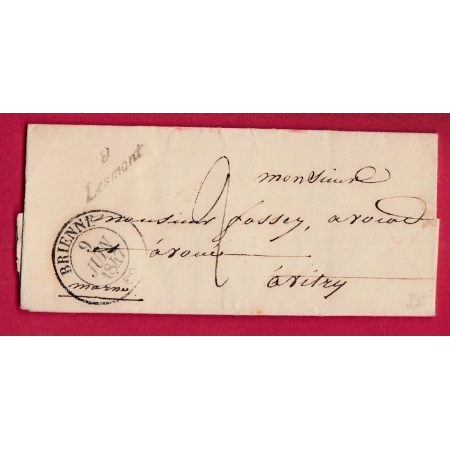 9
Lesmont
2
monsieur
monsieur fossey, avocat
et avoué
à vitry
marne
BRIENNE
9
JUIN
1847